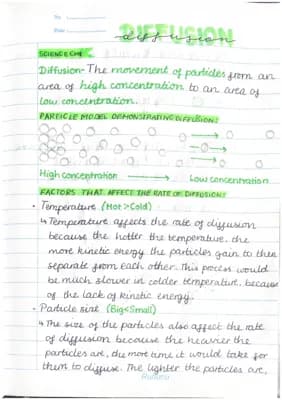 No.
Date
DIFFUSION
diffusion
SCIENCE CH4
Diffusion- The movement of particles from an
area of high concentration to an area of
low concentration.
PARTICLE MODEL DEMONSTRATING DIFFUSION:
High concentration → Low concentration
FACTORS THAT AFFECT THE RATE OF DIFFUSION:
• Temperature (Hot >Cold)
↳ Temperature affects the rate of diffusion
because the hotter the temperature, the
more kinetic energy the particles gain to then
separate from each other. This process would
be much slower in colder temperature, because
of the lack of kinetic energy.
• Particle size (Big<Small)
↳ The size of the particles also affect the rate
of diffusion because the heavier the
particles are, the more time it would take for
them to diffuse. The lighter the particles are,